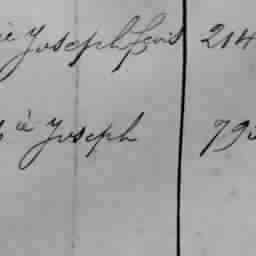 à Joseph Louis 214
à Joseph 79